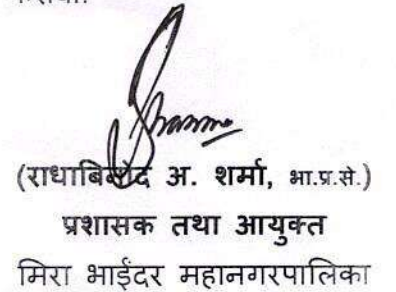 (राधाबिनोद अ. शर्मा, भा.प्र.से.)
प्रशासक तथा आयुक्त
मिरा भाईंदर महानगरपालिका